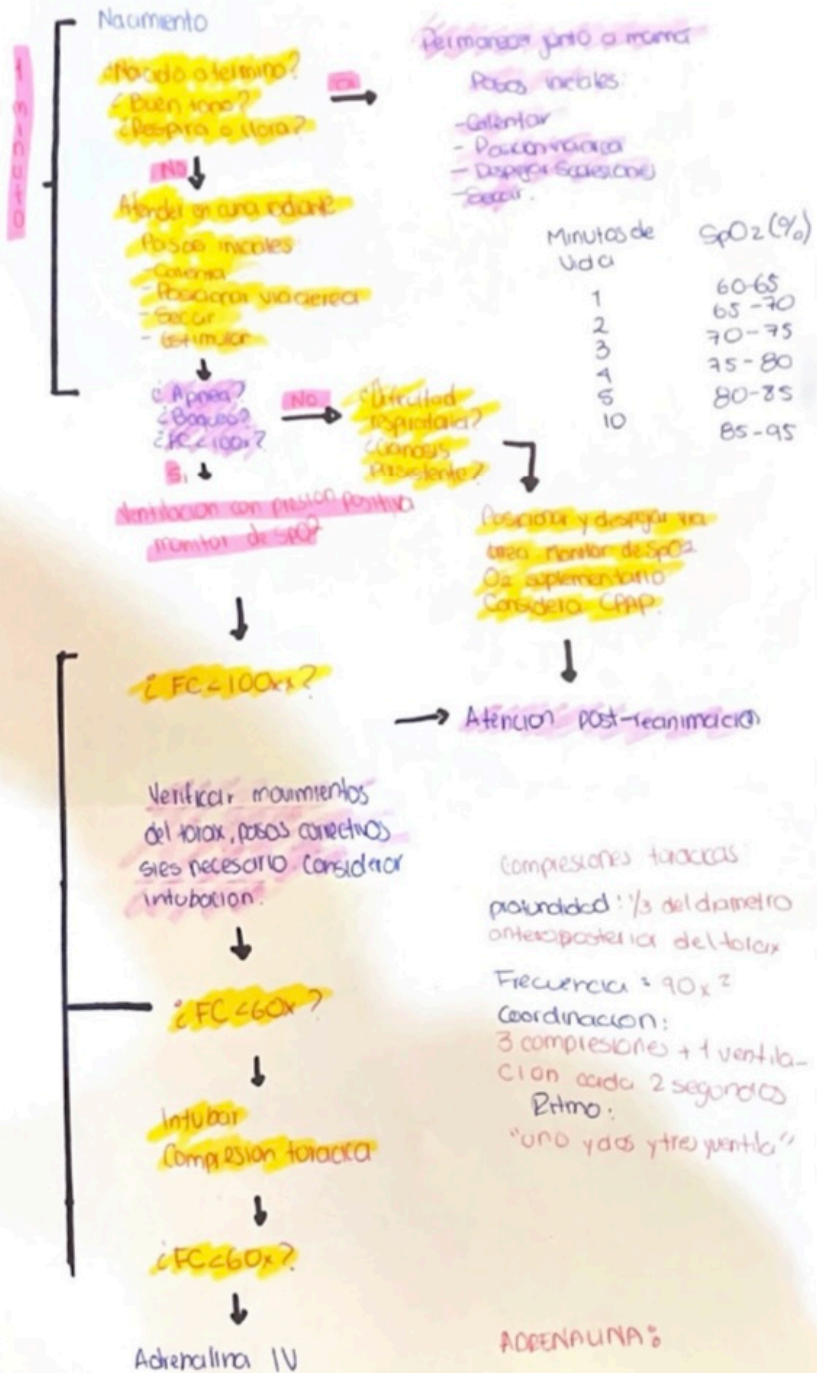 Nacimiento
1 minuto
¿Nacido a termino?
¿Buen tono?
¿Respira o llora?
Si
Permanecer junto a mamá
Pasos iniciales:
- Calentar
- Posicion via aerea
- Despejar Secresiones
- Secar.
No
Atender en cuna radiante
Pasos iniciales
- Calentar
- Posicionar via aerea
- Secar
- Estimular
Minutos de vida SpO2 (%)
1 60-65
2 65-70
3 70-75
4 75-80
5 80-85
10 85-95
¿Apnea?
¿Boqueo?
¿FC<100x?
No
¿Dificultad
respiratoria?
¿Cianosis
persistente?
Si
Ventilacion con presion positiva
monitor de SpO2
Posicionar y despejar via
aerea. Monitor de SpO2
O2 suplementario
Considera CPAP.
¿FC<100x?
Atencion post-reanimacion
Verificar movimientos
del torax, pasos correctivos
si es necesario Considerar
intubacion.
¿FC<60x?
Intubar
Compresion toracica
¿FC<60x?
Adrenalina IV
Compresiones toracicas
profundidad: 1/3 del diametro
anteroposterior del torax
Frecuencia: 90x
Coordinacion:
3 compresiones + 1 ventila-
cion cada 2 segundos
Ritmo:
"uno y dos y tres y ventila"
ADRENALINA: